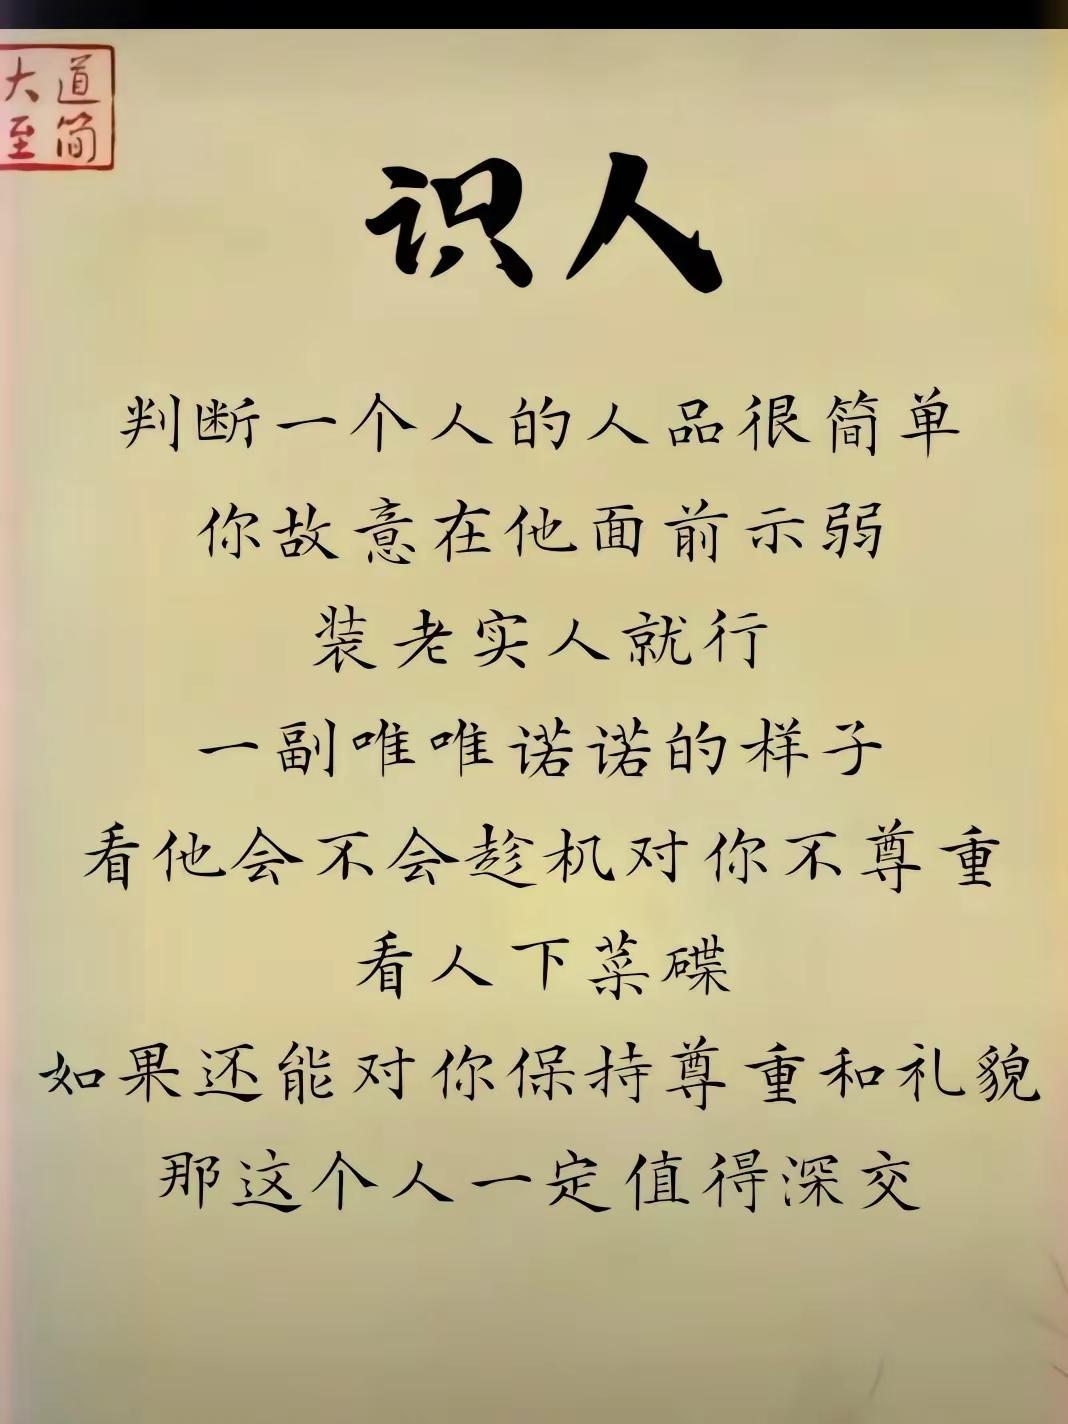 大道
至简
识人
判断一个人的人品很简单
你故意在他面前示弱
装老实人就行
一副唯唯诺诺的样子
看他会不会趁机对你不尊重
看人下菜碟
如果还能对你保持尊重和礼貌
那这个人一定值得深交